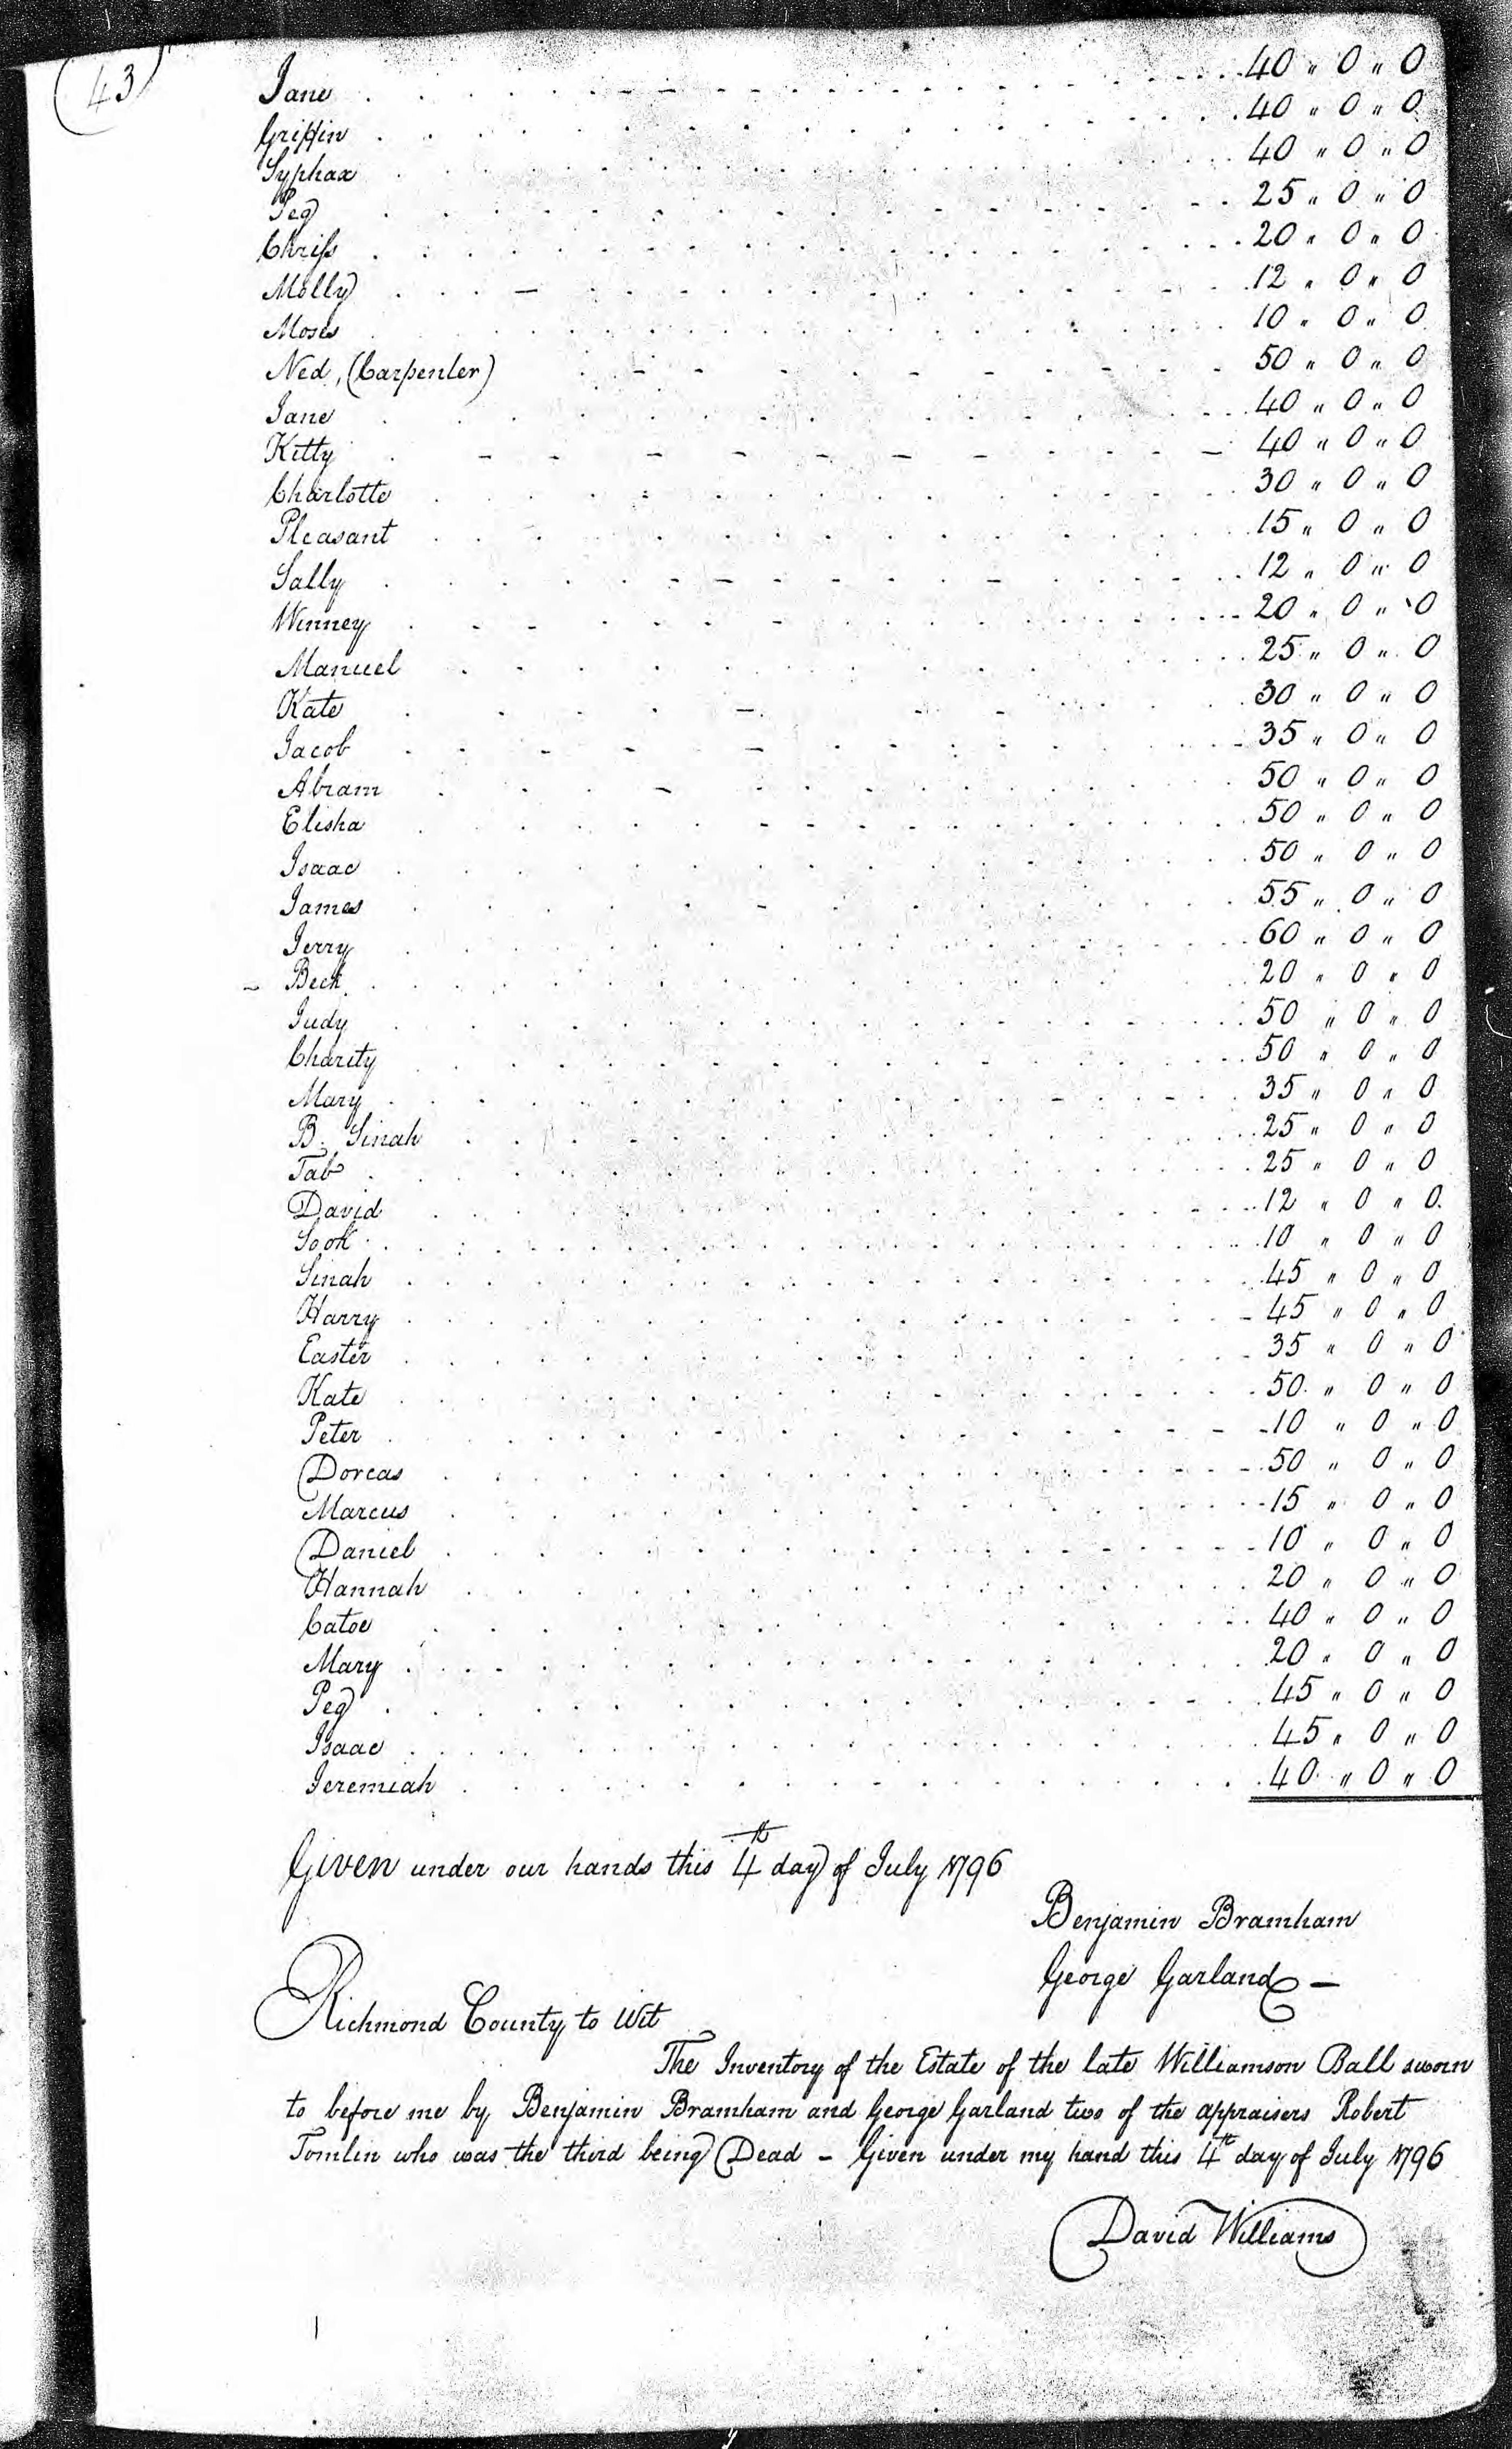 43
Jane 40 " 0 " 0
Griffin 40 " 0 " 0
Syphax 40 " 0 " 0
Peg 25 " 0 " 0
Chriss 20 " 0 " 0
Molly 12 " 0 " 0
Moses 10 " 0 " 0
Ned, (Carpenter) 50 " 0 " 0
Jane 40 " 0 " 0
Kitty 40 " 0 " 0
Charlotte 30 " 0 " 0
Pleasant 15 " 0 " 0
Sally 12 " 0 " 0
Winney 20 " 0 " 0
Manuel 25 " 0 " 0
Kate 30 " 0 " 0
Jacob 35 " 0 " 0
Abram 50 " 0 " 0
Elisha 50 " 0 " 0
Isaac 50 " 0 " 0
James 55 " 0 " 0
Jerry 60 " 0 " 0
Beck 20 " 0 " 0
Judy 50 " 0 " 0
Charity 50 " 0 " 0
Mary 35 " 0 " 0
B. Sinah 25 " 0 " 0
Tab 25 " 0 " 0
David 12 " 0 " 0
Sook 10 " 0 " 0
Sinah 45 " 0 " 0
Harry 45 " 0 " 0
Easter 35 " 0 " 0
Kate 50 " 0 " 0
Peter 10 " 0 " 0
Dorcas 50 " 0 " 0
Marcus 15 " 0 " 0
Daniel 10 " 0 " 0
Hannah 20 " 0 " 0
Catoe 40 " 0 " 0
Mary 20 " 0 " 0
Peg 45 " 0 " 0
Isaac 45 " 0 " 0
Jeremiah 40 " 0 " 0
Given under our hands this 4th day of July 1796
Benjamin Bramham
George Garland
Richmond County to Wit
The Inventory of the Estate of the late Williamson Ball sworn
to before me by Benjamin Bramham and George Garland two of the appraisers Robert
Tomlin who was the third being Dead - Given under my hand this 4th day of July 1796
David Williams